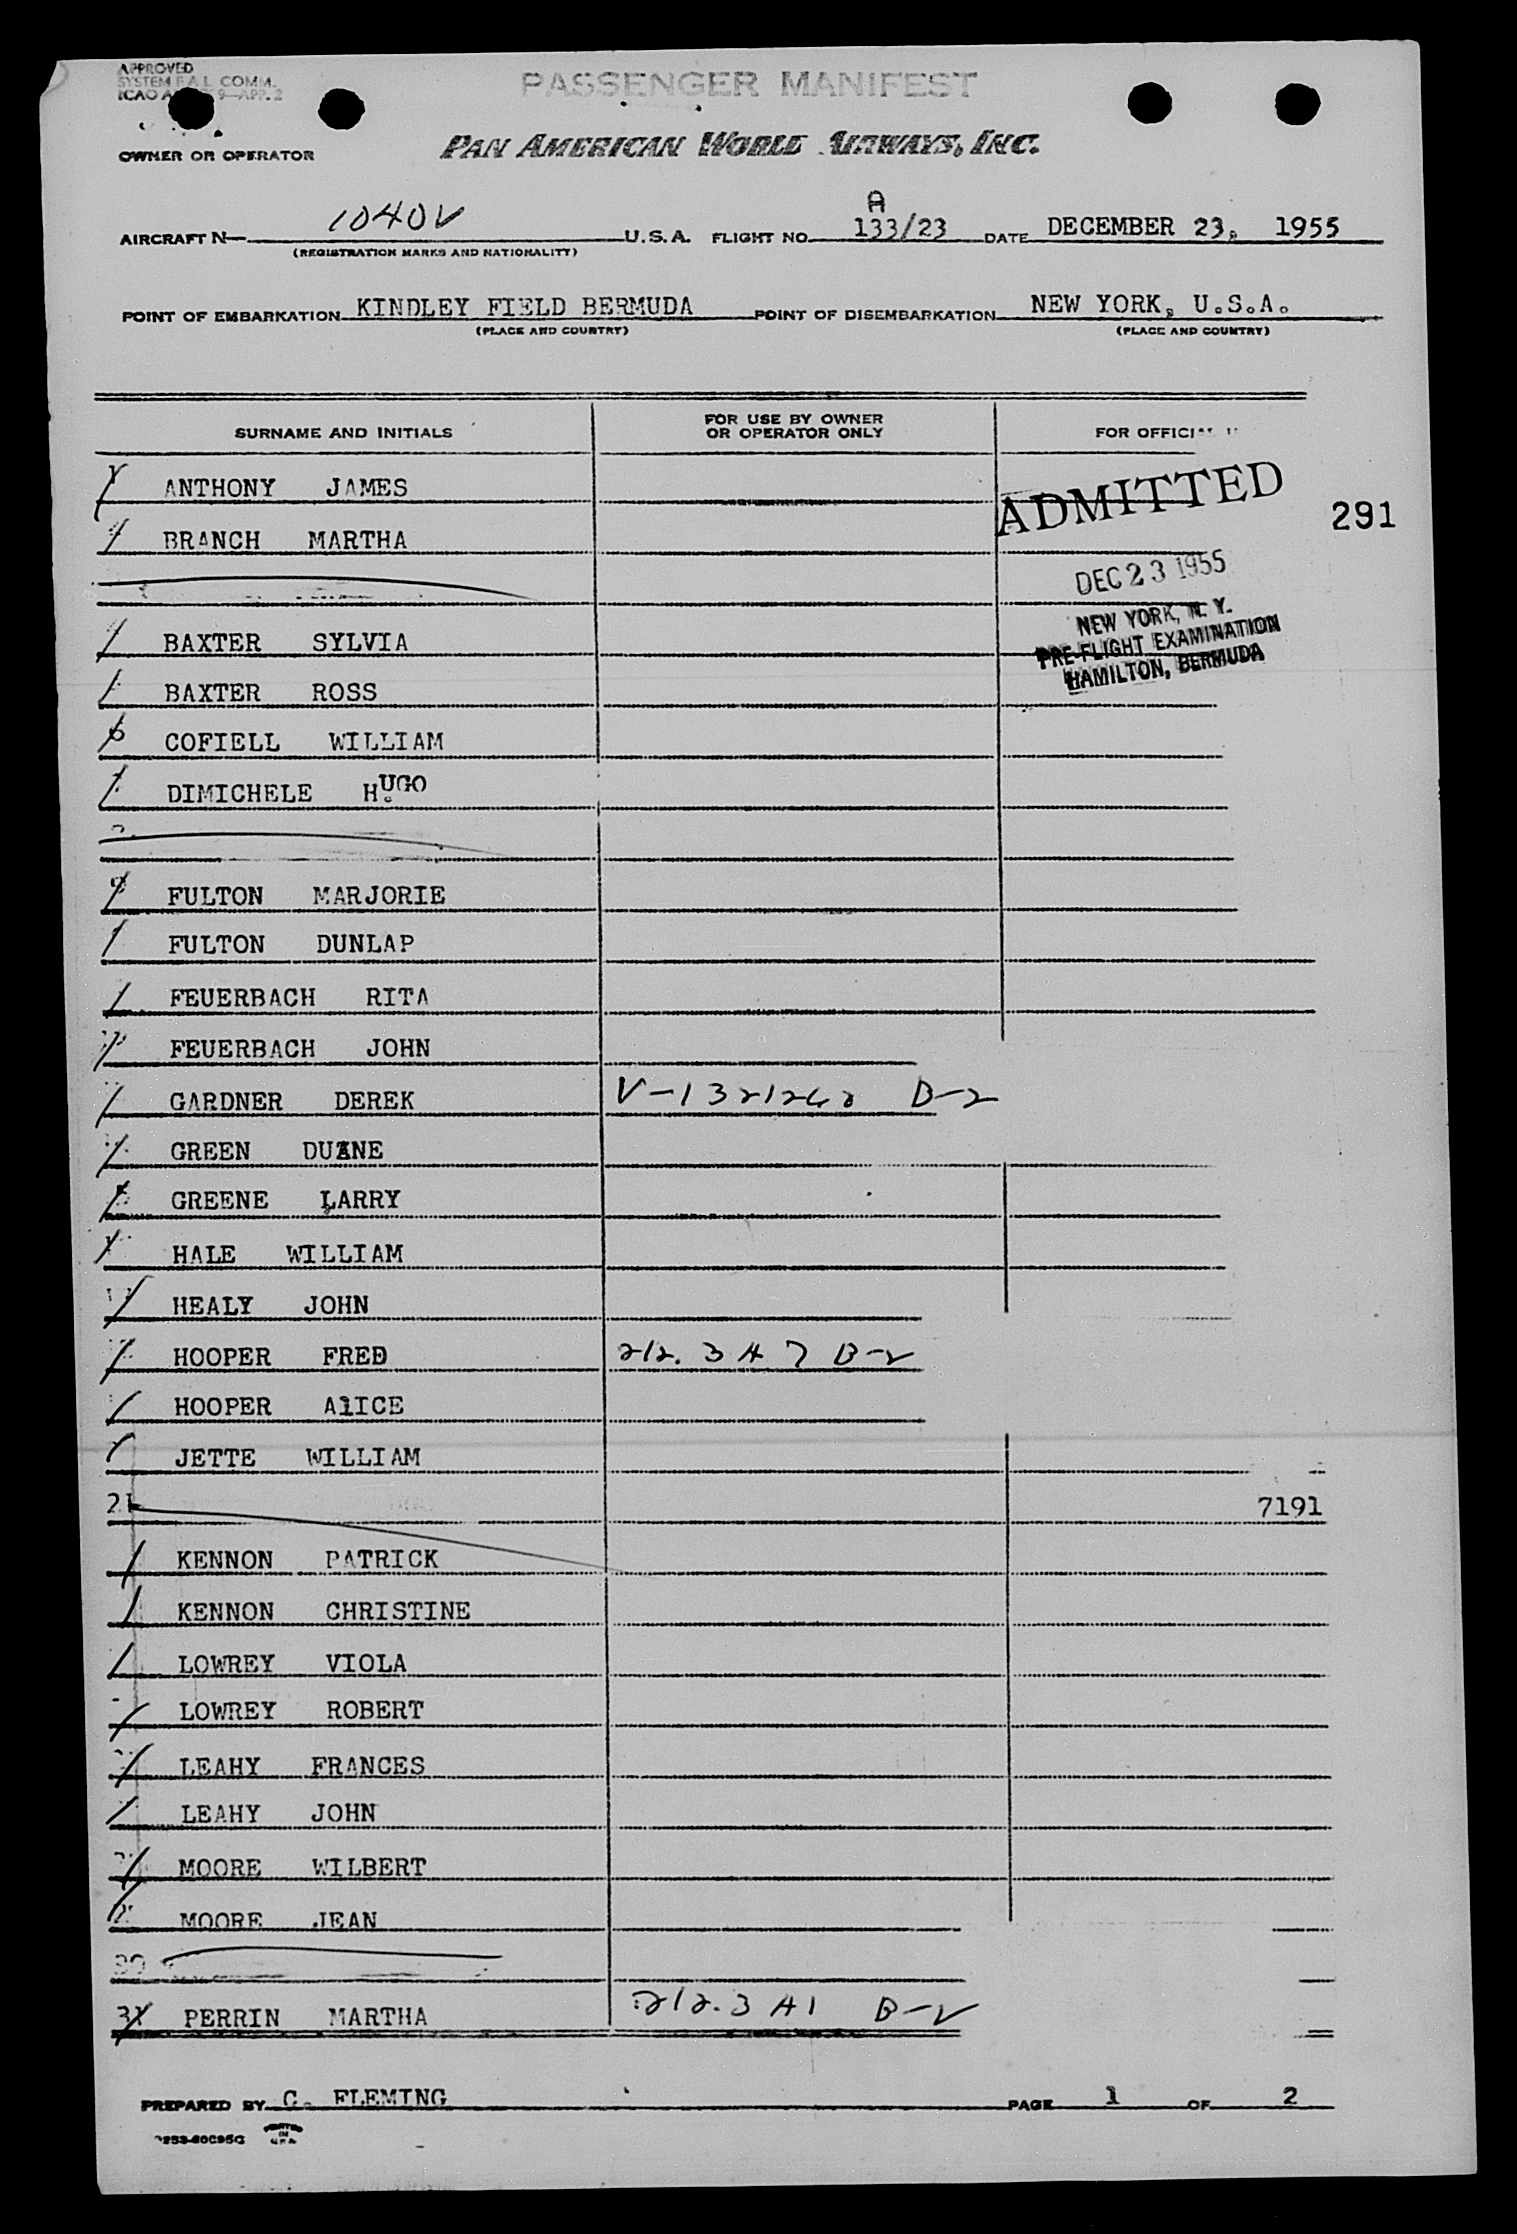 APPROVED
SYSTEM F.A.L. COMM.
ICAO 9—APP. 2
PASSENGER MANIFEST
OWNER OR OPERATOR
PAN AMERICAN WORLD AIRWAYS, INC.
A
AIRCRAFT N— 1040V U.S.A. FLIGHT NO. 133/23 DATE DECEMBER 23, 1955
(REGISTRATION MARKS AND NATIONALITY)
POINT OF EMBARKATION KINDLEY FIELD BERMUDA POINT OF DISEMBARKATION NEW YORK, U.S.A.
(PLACE AND COUNTRY) (PLACE AND COUNTRY)
SURNAME AND INITIALS FOR USE BY OWNER OR OPERATOR ONLY FOR
ANTHONY JAMES
ADMITTED
291
BRANCH MARTHA
DEC 23 1955
NEW YORK, N. Y.
BAXTER SYLVIA
PRE-FLIGHT EXAMINATION
HAMILTON, BERMUDA
BAXTER ROSS
6 COFIELL WILLIAM
DIMICHELE HUGO
FULTON MARJORIE
FULTON DUNLAP
FEUERBACH RITA
FEUERBACH JOHN
GARDNER DEREK B-2
GREEN DUANE
GREENE LARRY
HALE WILLIAM
HEALY JOHN
HOOPER FRED 212.3 A7 B-2
HOOPER AlICE
JETTE WILLIAM
21 7191
KENNON PATRICK
KENNON CHRISTINE
LOWREY VIOLA
LOWREY ROBERT
LEAHY FRANCES
LEAHY JOHN
MOORE WILBERT
MOORE JEAN
30
31 PERRIN MARTHA 212.3 A1 B-2
PREPARED BY C. FLEMING PAGE 1 OF 2
PRINTED
IN
U.S.A.